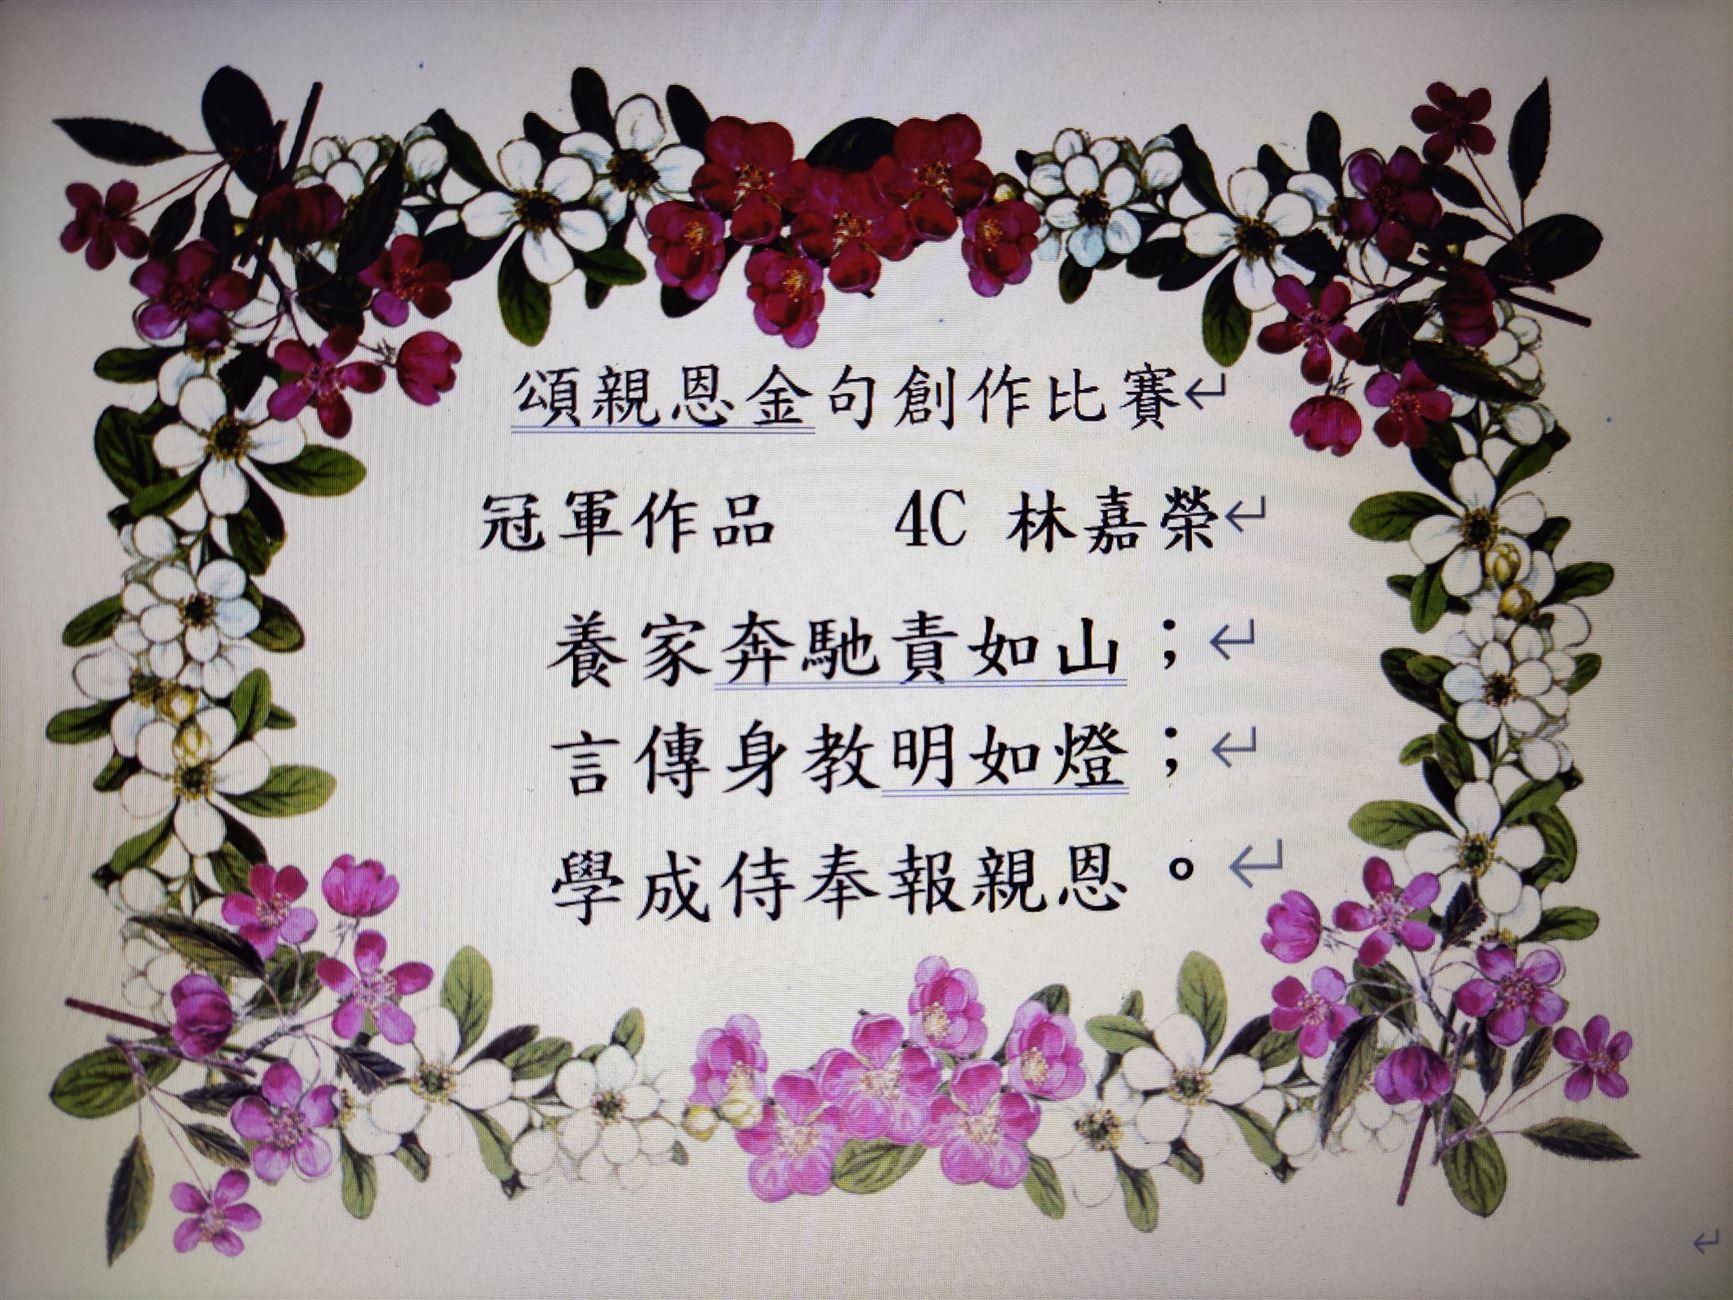 頌親恩金句創作比賽
冠軍作品 4C 林嘉榮
養家奔馳責如山；
言傳身教明如燈；
學成侍奉報親恩。